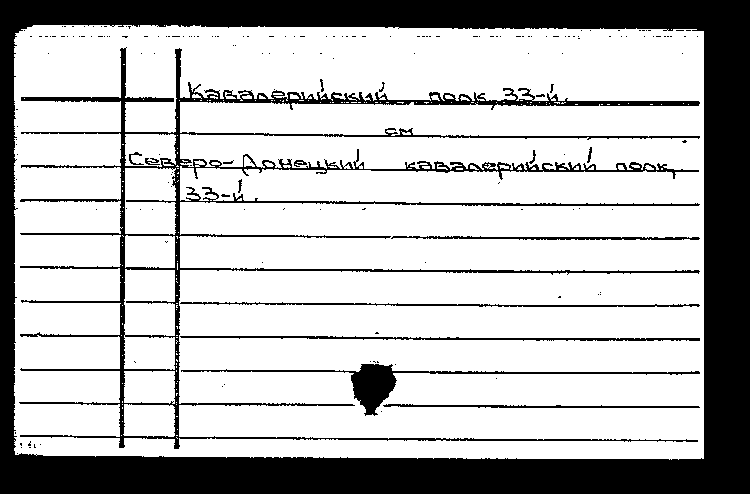 Кавалерийский полк, 33-й.
см
Северо-Донецкий кавалерийский полк,
33-й.